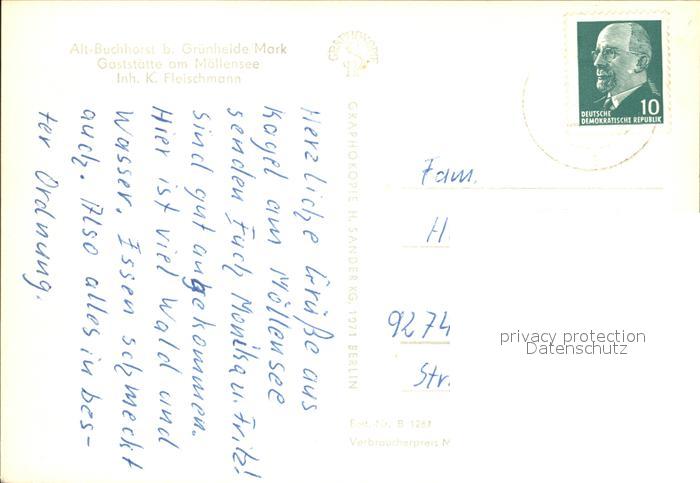 Alt-Buchhorst b. Grünheide/Mark
Gaststätte am Möllensee
Inh. K. Fleischmann
Herzliche Grüße aus
Kagel am Möllensee
senden Euch Monika u. Fritz!
Sind gut angekommen.
Hier ist viel Wald und
Wasser. Essen schmeckt
auch. Also alles in bes-
ter Ordnung.
GRAPHOKOPIE
GRAPHOKOPIE H. SANDER KG, 1971 BERLIN
10
DEUTSCHE
DEMOKRATISCHE REPUBLIK
Fam.
H
9274
Str.
privacy protection
Datenschutz
Best.-Nr. B 1267
Verbraucherpreis M